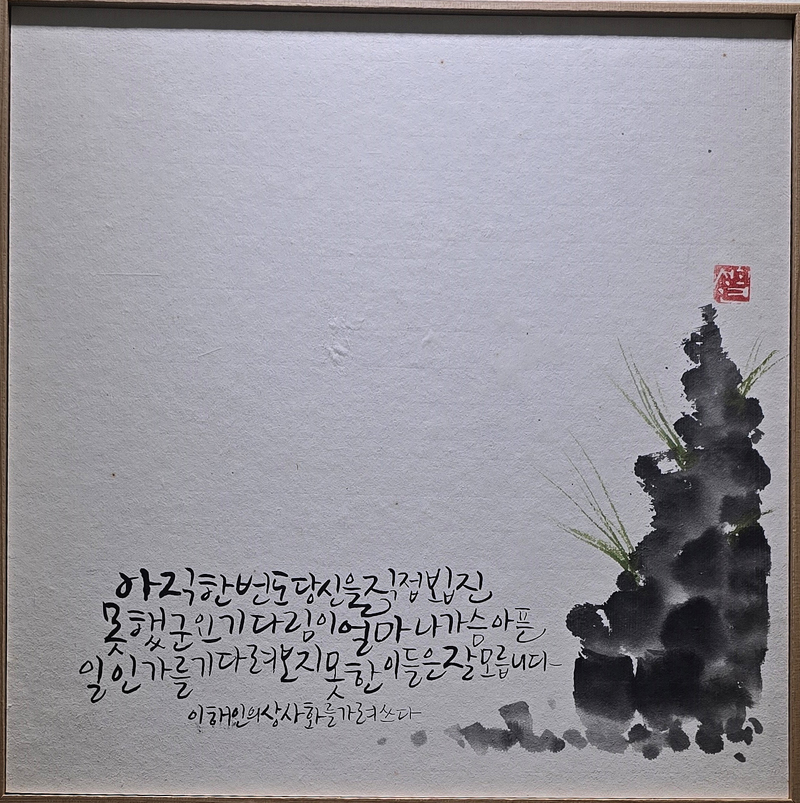 아직 한번도 당신을 직접 뵙진
못했군요 기다림이 얼마나 가슴 아픈
일인가를 기다려 보지 못한 이들은 잘 모릅니다
이해인의 상사화를 가려 쓰다